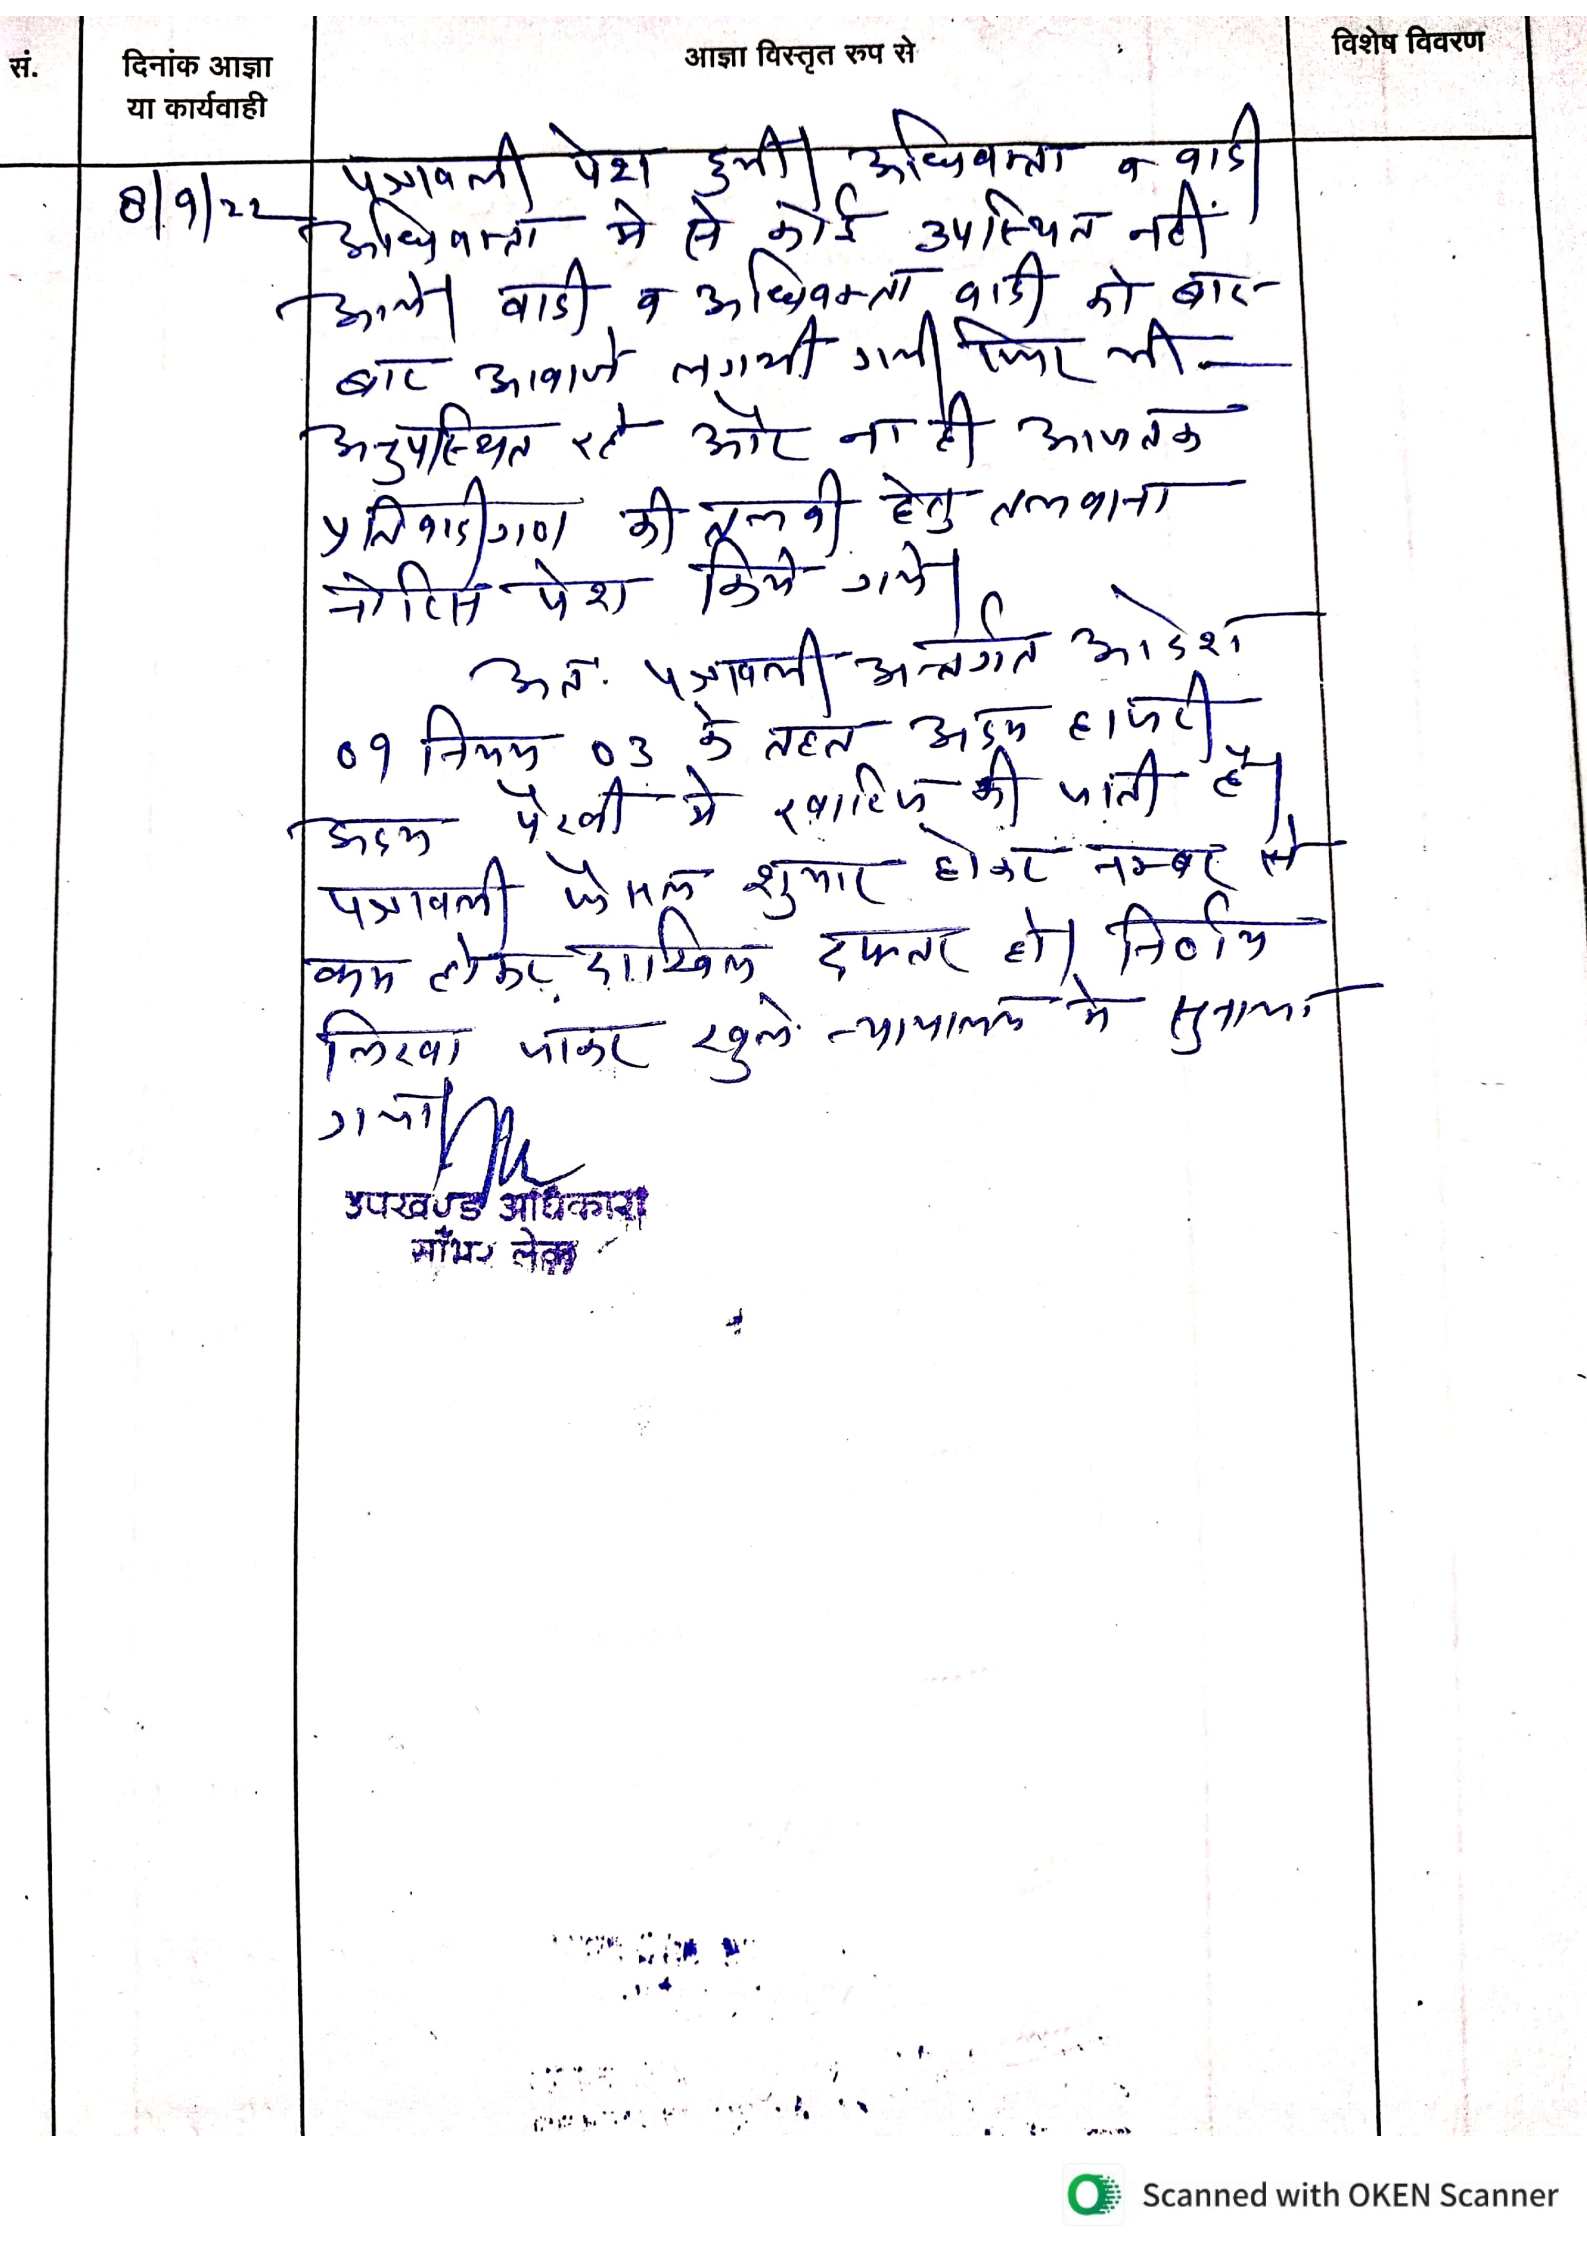 सं.
दिनांक आज्ञा
या कार्यवाही
आज्ञा विस्तृत रूप से
विशेष विवरण
8/9/22
पत्रावली पेश हुयी। अधिवक्ता व वादी
अधिवक्ता मे से कोई उपस्थित नहीं
आये। वादी व अधिवक्ता वादी को बार
बार आवाजे लगायी गयी फिर भी
अनुपस्थित रहे और ना ही आजतक
प्रतिवादीगण की तलबी हेतु तलवाना
नोटिस पेश किये गये।
अतः पत्रावली अन्तर्गत आदेश
09 नियम 03 के तहत अदम हाजरी
अदम पैरवी मे खारिज की जाती है।
पत्रावली फैसल शुमार होकर नम्बर से
कम होकर दाखिल दफ्तर हो। निर्णय
लिखा जाकर खुले न्यायालय मे सुनाया
गया।
उपखण्ड अधिकारी
साँभर लेक
Scanned with OKEN Scanner